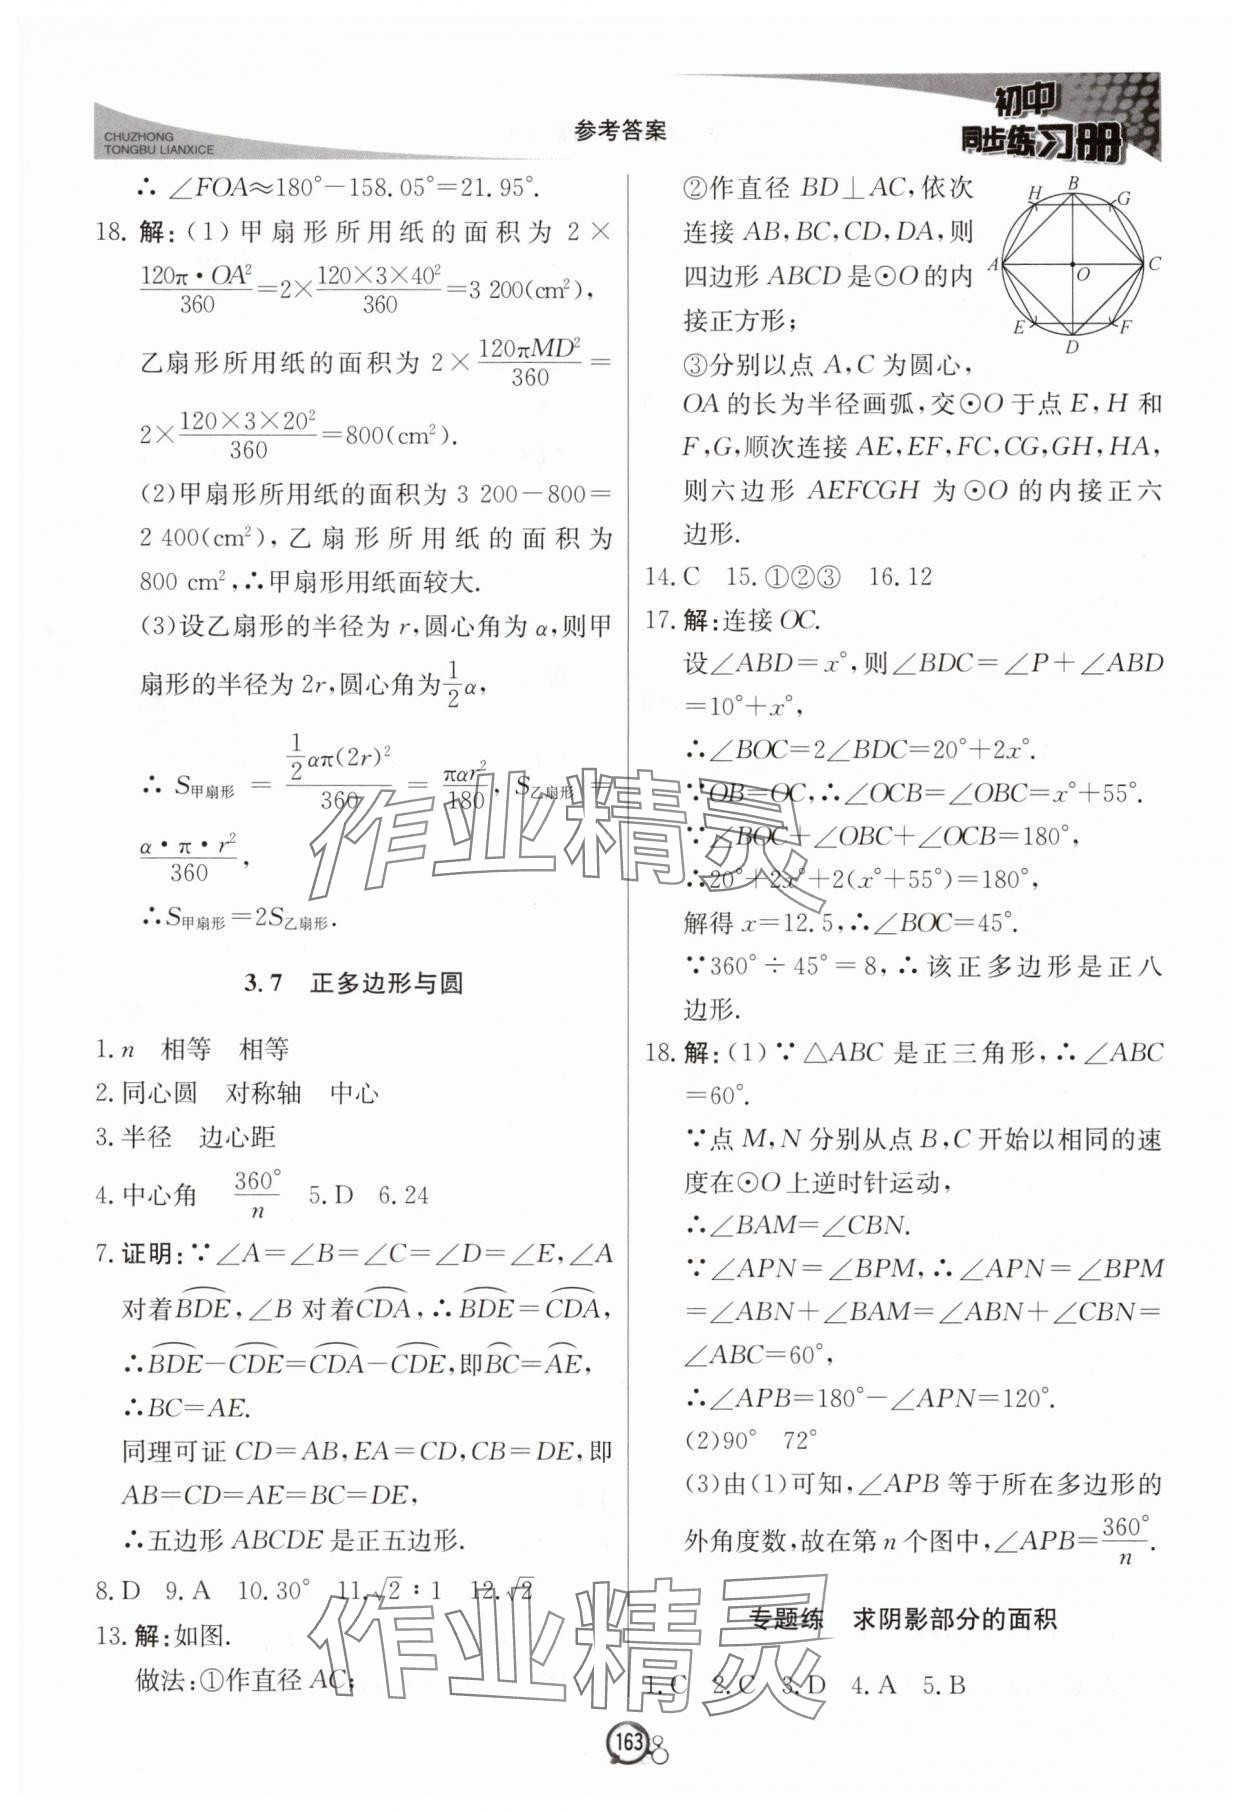 CHUZHONG
TONGBU LIANXICE
参考答案
初中
同步练习册
∴ ∠FOA≈180°−158.05°=21.95°.
18. 解:(1)甲扇形所用纸的面积为 2×
120π·OA²/360=2×120×3×40²/360=3 200(cm²),
乙扇形所用纸的面积为 2×120πMD²/360=
2×120×3×20²/360=800(cm²).
(2)甲扇形所用纸的面积为 3 200−800=
2 400(cm²),乙扇形所用纸的面积为
800 cm²,∴甲扇形用纸面较大.
(3)设乙扇形的半径为 r,圆心角为 α,则甲
扇形的半径为 2r,圆心角为1/2α,
∴ S甲扇形 = 1/2απ(2r)²/360 = παr²/180, S乙扇形 =
α·π·r²/360,
∴S甲扇形=2S乙扇形.
3.7 正多边形与圆
1. n 相等 相等
2. 同心圆 对称轴 中心
3. 半径 边心距
4. 中心角 360°/n 5. D 6. 24
7. 证明:∵∠A=∠B=∠C=∠D=∠E,∠A
对着⌒BDE,∠B 对着⌒CDA,∴⌒BDE=⌒CDA,
∴⌒BDE−⌒CDE=⌒CDA−⌒CDE,即⌒BC=⌒AE,
∴BC=AE.
同理可证 CD=AB,EA=CD,CB=DE,即
AB=CD=AE=BC=DE,
∴五边形 ABCDE 是正五边形.
8. D 9. A 10. 30° 11. √2∶1 12. √2
13. 解:如图.
做法:①作直径 AC;
②作直径 BD⊥AC,依次
连接 AB,BC,CD,DA,则
四边形 ABCD 是⊙O 的内
接正方形;
H B G
A O C
E D F
③分别以点 A,C 为圆心,
OA 的长为半径画弧,交⊙O 于点 E,H 和
F,G,顺次连接 AE,EF,FC,CG,GH,HA,
则六边形 AEFCGH 为⊙O 的内接正六
边形.
14. C 15. ①②③ 16. 12
17. 解:连接 OC.
设∠ABD=x°,则∠BDC=∠P+∠ABD
=10°+x°,
∴∠BOC=2∠BDC=20°+2x°.
∵OB=OC,∴∠OCB=∠OBC=x°+55°.
∵∠BOC+∠OBC+∠OCB=180°,
∴20°+2x°+2(x°+55°)=180°,
解得 x=12.5,∴∠BOC=45°.
∵360°÷45°=8,∴该正多边形是正八
边形.
18. 解:(1)∵△ABC 是正三角形,∴∠ABC
=60°.
∵点 M,N 分别从点 B,C 开始以相同的速
度在⊙O 上逆时针运动,
∴∠BAM=∠CBN.
∵∠APN=∠BPM,∴∠APN=∠BPM
=∠ABN+∠BAM=∠ABN+∠CBN=
∠ABC=60°,
∴∠APB=180°−∠APN=120°.
(2)90° 72°
(3)由(1)可知,∠APB 等于所在多边形的
外角度数,故在第 n 个图中,∠APB=360°/n.
专题练 求阴影部分的面积
1. C 2. C 3. D 4. A 5. B
163
作业精灵
作业精灵